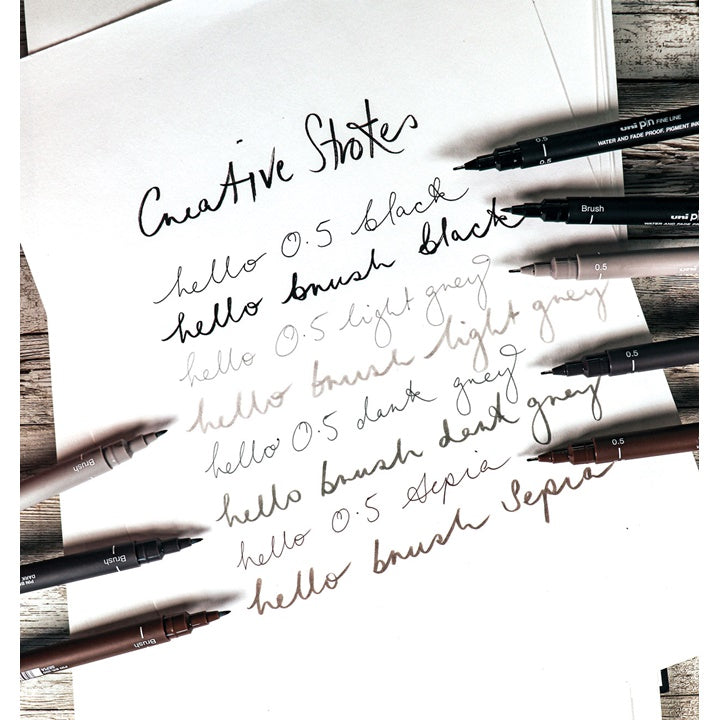 Creative Strokes
hello 0.5 black
hello brush black
hello 0.5 light grey
hello brush light grey
hello 0.5 dark grey
hello brush dark grey
hello 0.5 sepia
hello brush sepia
0.5
0.5
uni pin FINE LINE
WATER AND FADE PROOF, PIGMENT INK
Brush
uni pin
WATER AND FADE PROOF
0.5
uni
0.5
0.5
Brush
Brush
DARK
Brush
SEPIA